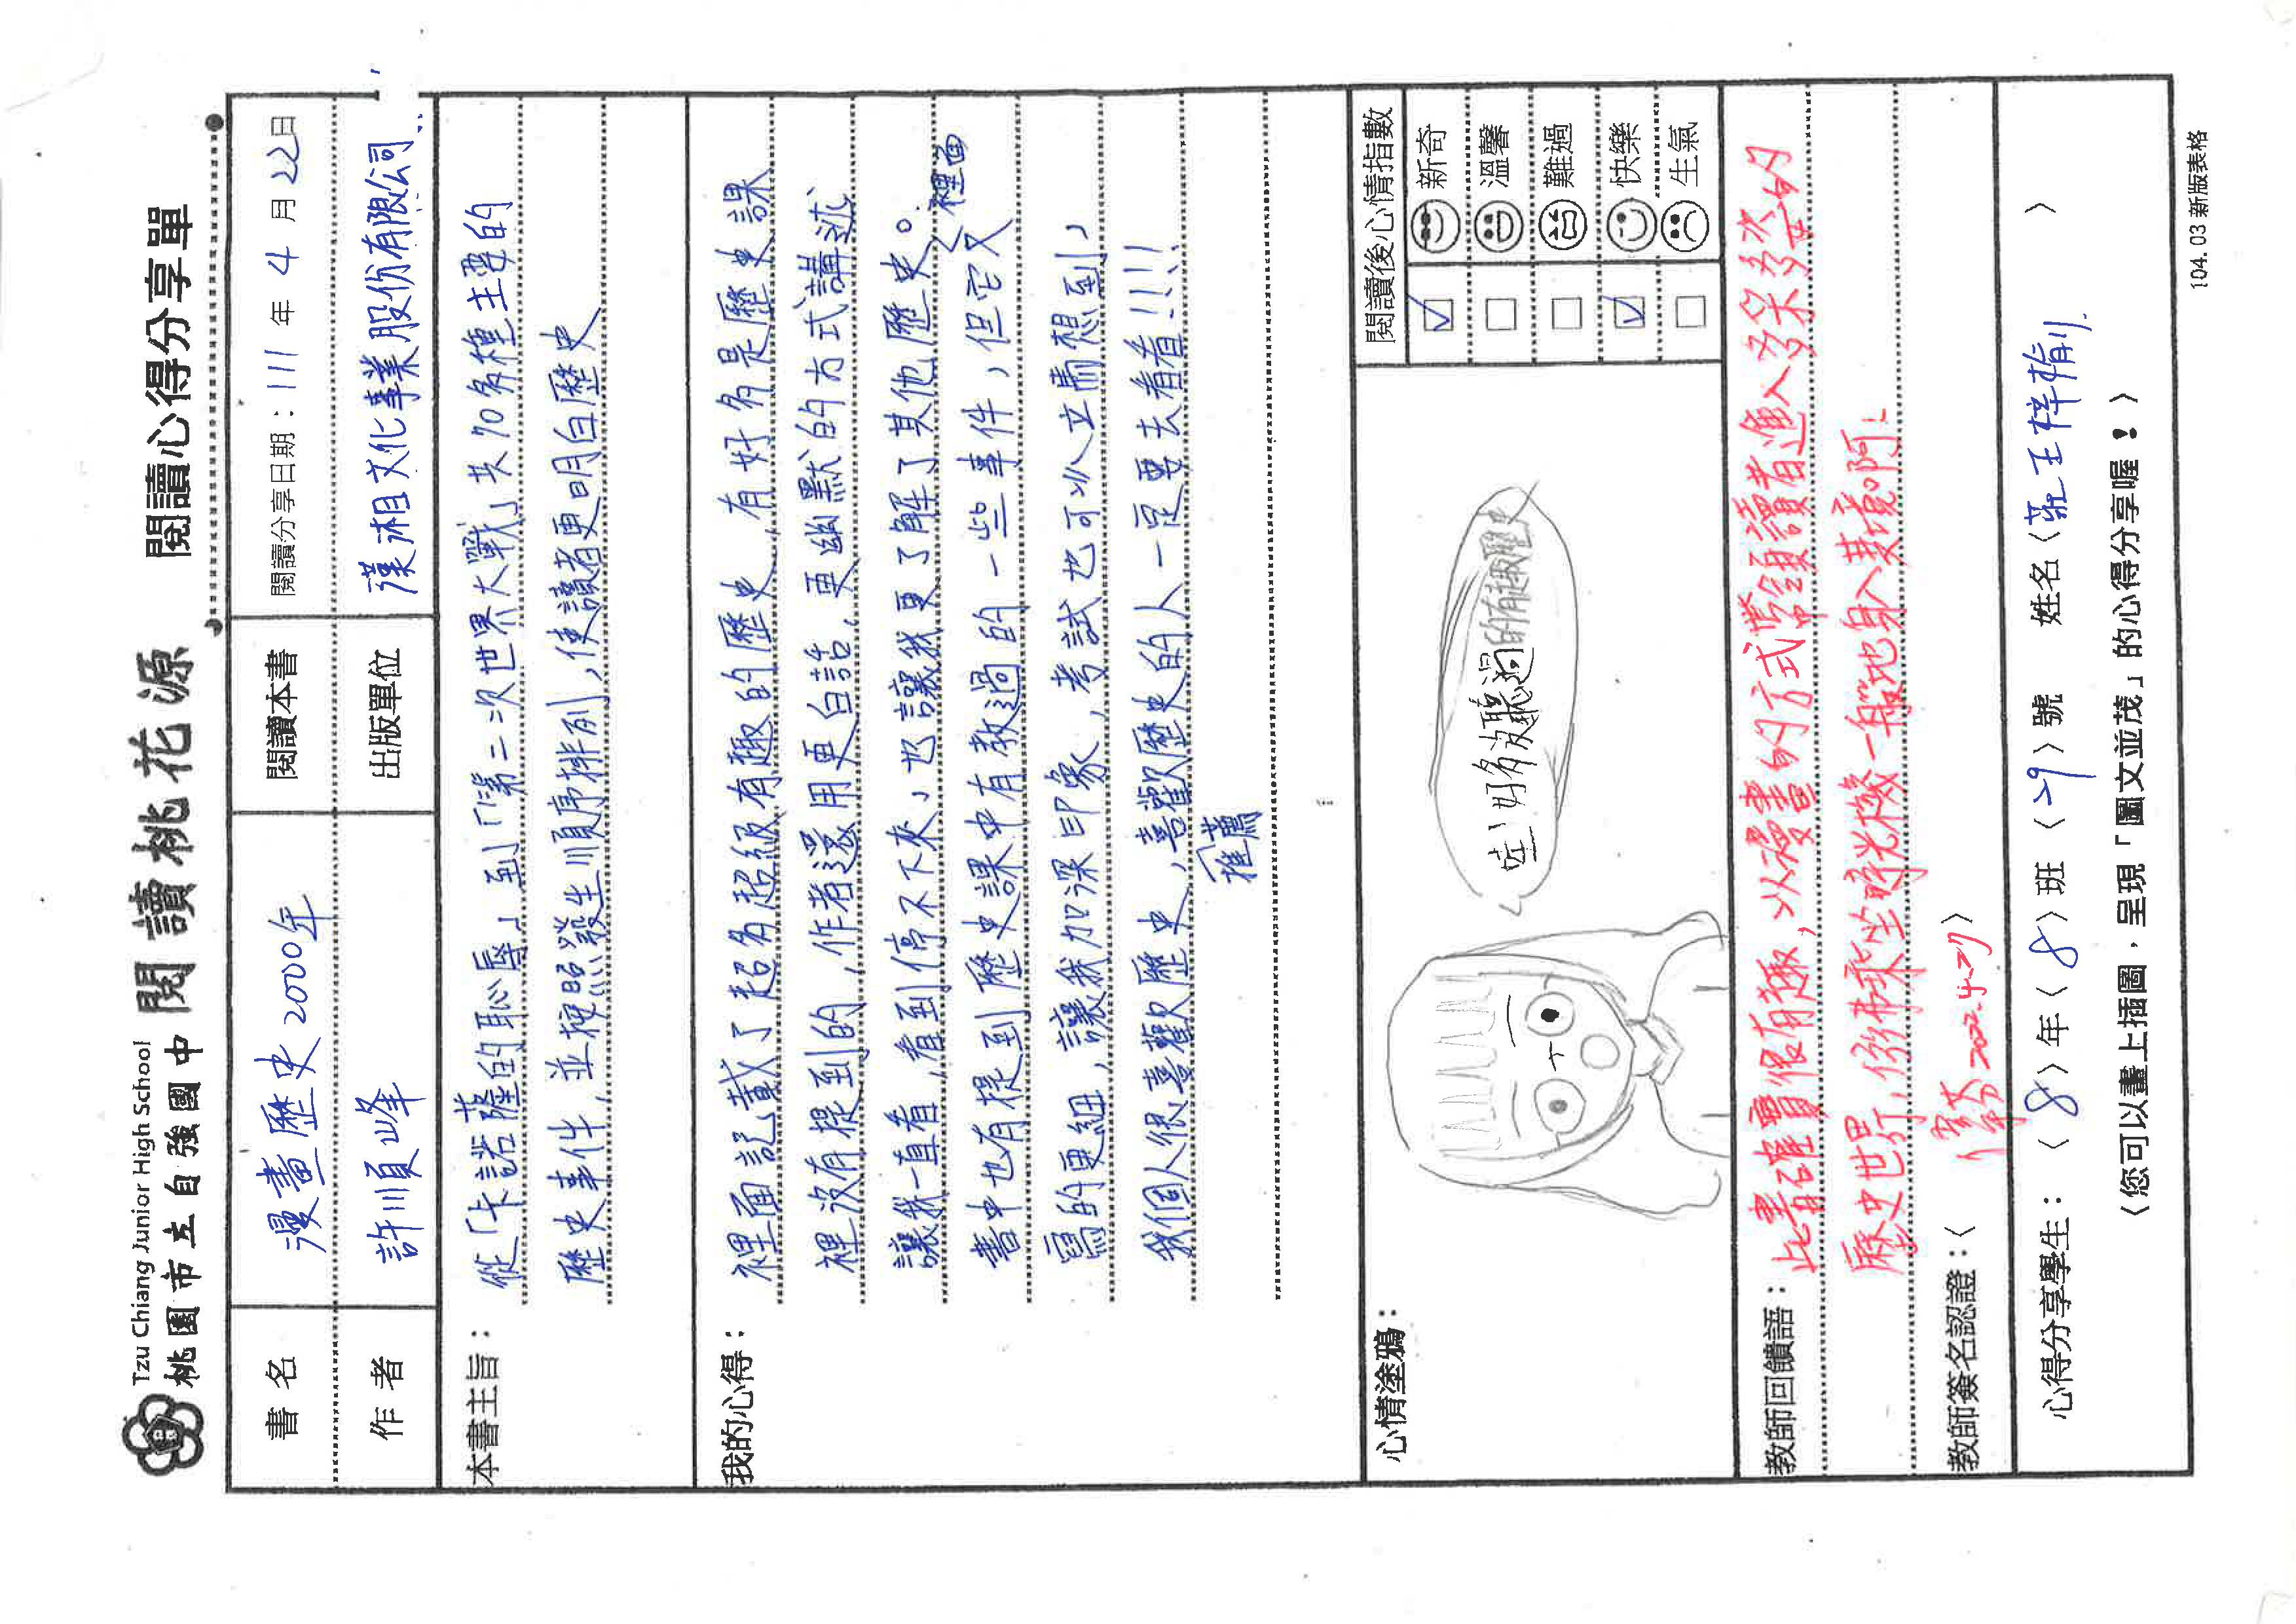 Tzu Chiang Junior High School
桃園市立自強國中 閱讀桃花源 閱讀心得分享單
書名 漫畫歷史2000年 閱讀本書 閱讀分享日期：111年4月22日
作者 許順峰 出版單位 漢湘文化事業股份有限公司
本書主旨：
從「卡諾薩的恥辱」到「第二次世界大戰」共70多種主要的
歷史事件，並按照發生順序排列，使讀者更明白歷史
我的心得：
裡面記載了超多超級有趣的歷史，有好多是歷史課
裡沒有提到的，作者還用更白話，更幽默的方式講述
讓我一直看，看到停不下來，也讓我更了解了其他歷史。
書中也有提到歷史課中有教過的一些事件，但它又
裡面
寫的更細，讓我加深印象，考試也可以立需想到，
我個人很喜歡歷史，喜歡歷史的人一定要去看看!!!!
推薦
心情塗鴉：
哇！好多沒聽過的有趣歷史
閱讀後心情指數
新奇
溫馨
難過
快樂
生氣
教師回饋語：
此書確實很有趣，以漫畫的方式帶領讀者進入多采多姿的
歷史世界，彷彿乘坐時光機一般地身入其境啊！
教師簽名認證：〈 2022.4.27 〉
心得分享學生：〈8〉年〈8〉班〈29〉號 姓名〈莊王梓 〉
〈您可以畫上插圖，呈現「圖文並茂」的心得分享喔！〉
104.03 新版表格